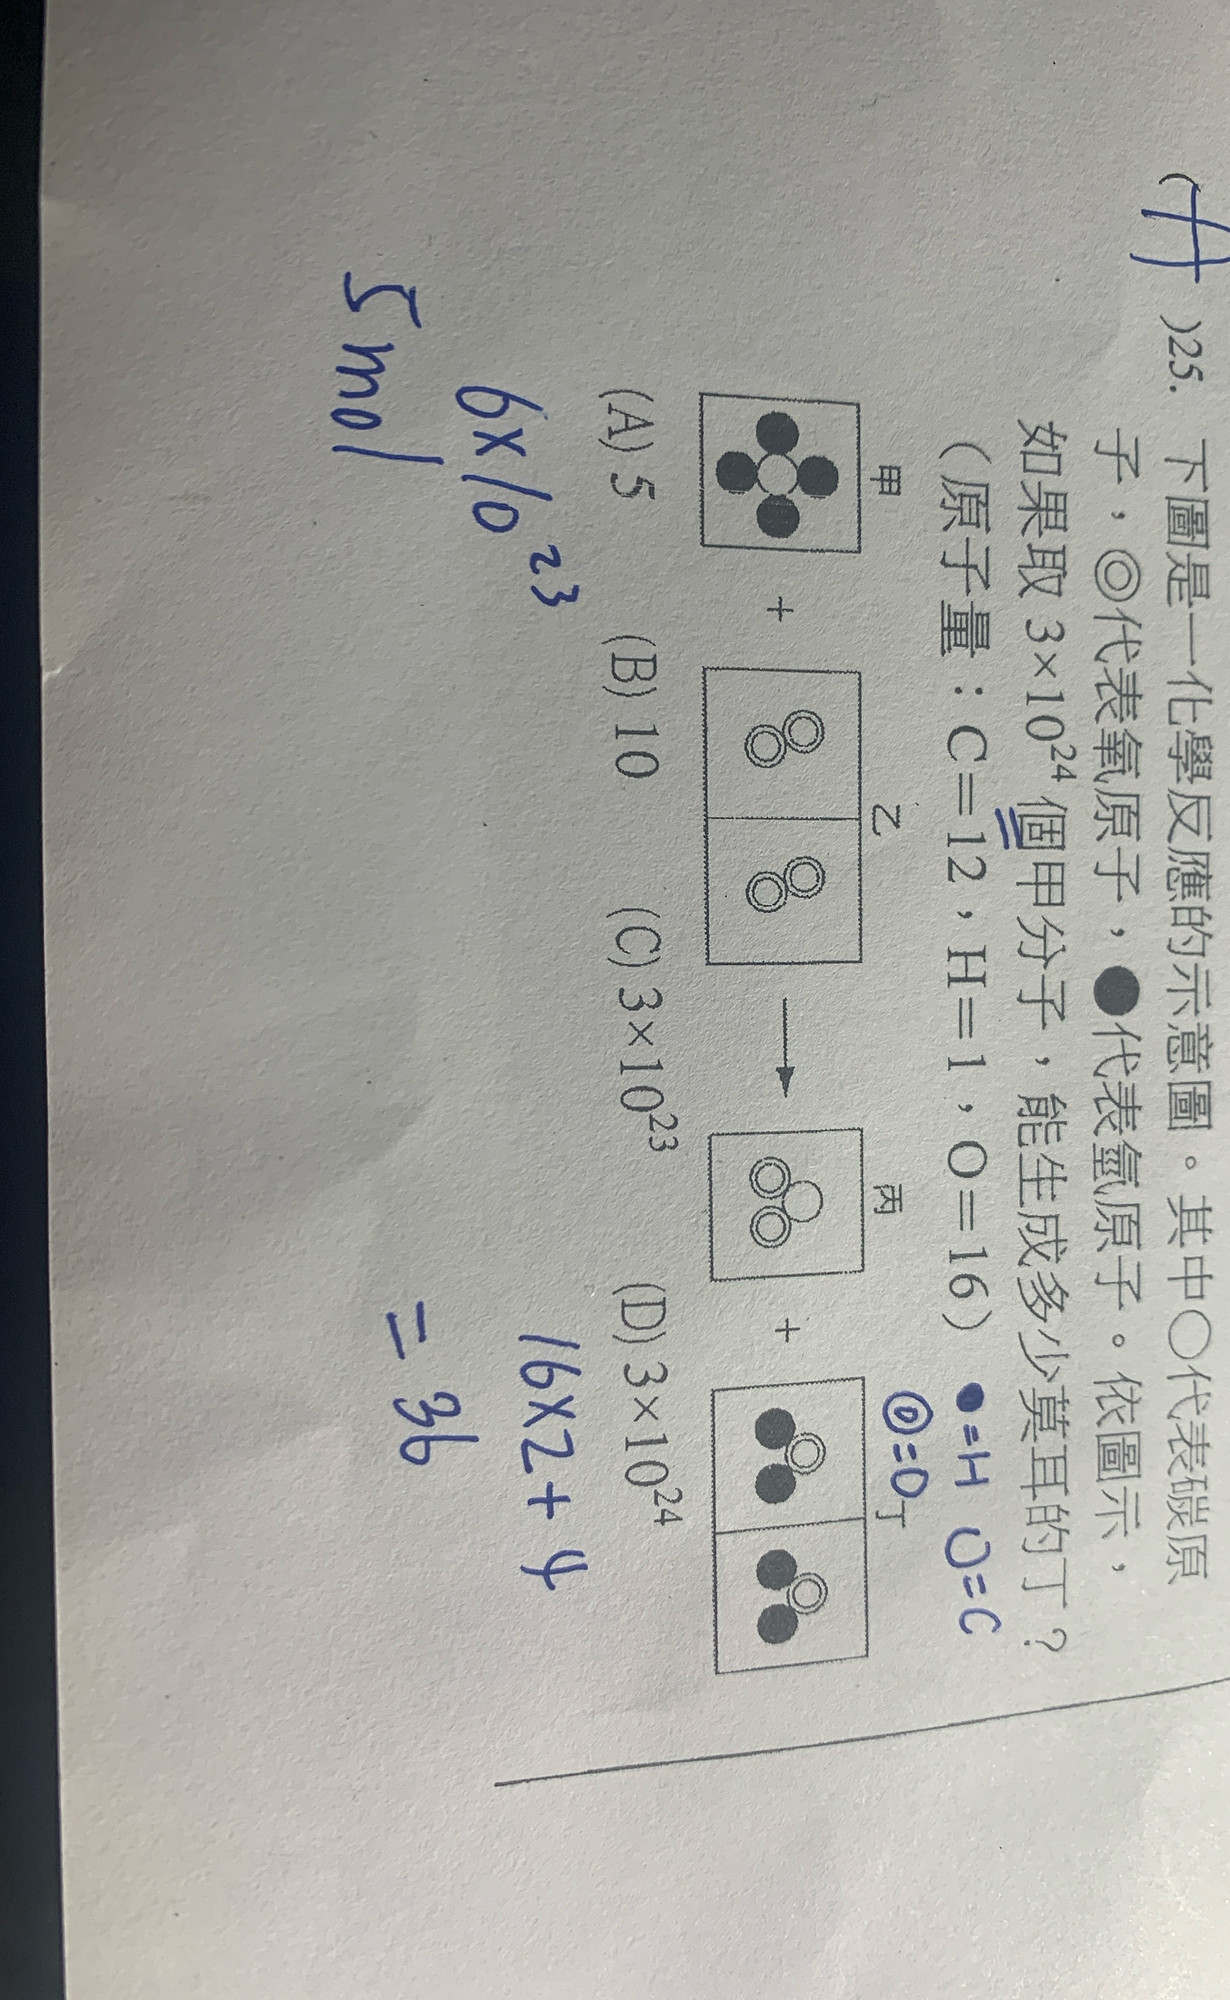 ( A )25. 下圖是一化學反應的示意圖。其中○代表碳原
子，◎代表氧原子，●代表氫原子。依圖示，
如果取 3×10²⁴ 個甲分子，能生成多少莫耳的丁？
（原子量：C＝12，H＝1，O＝16） ●=H O=C
◎=O
甲 乙 丙 丁
+ → +
(A) 5 (B) 10 (C) 3×10²³ (D) 3×10²⁴
6×10²³ 16×2+4
5mol =36